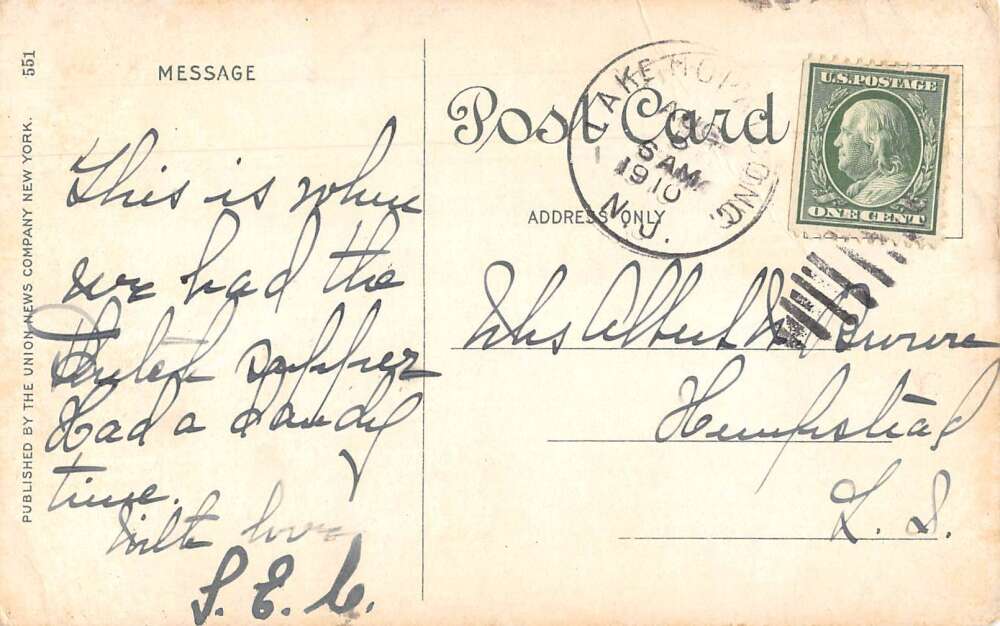 551
PUBLISHED BY THE UNION NEWS COMPANY NEW YORK.
MESSAGE
This is where
we had the
Dutch supper
Had a dandy
time.
With love
S. E. C.
Post Card
ADDRESS ONLY
LAKE HOPATCONG
AUG
6 AM
1910
N.J.
U.S. POSTAGE
ONE CENT
Mrs Albert
Hempstead
L. I.